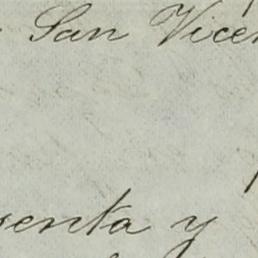 San Vicen
enta y